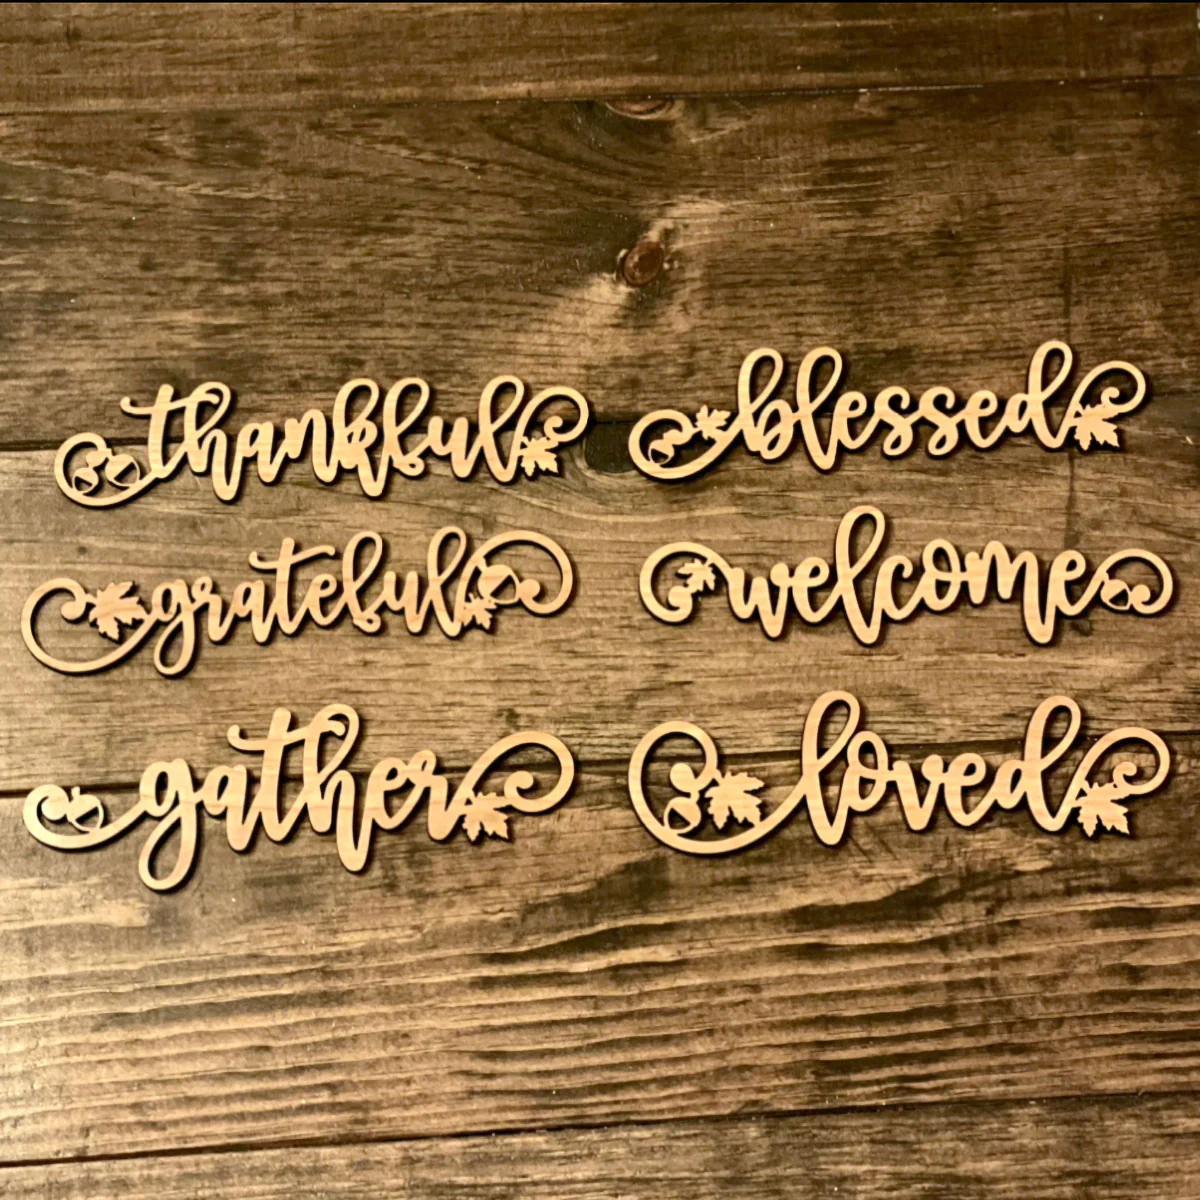 thankful
blessed
grateful
welcome
gather
loved